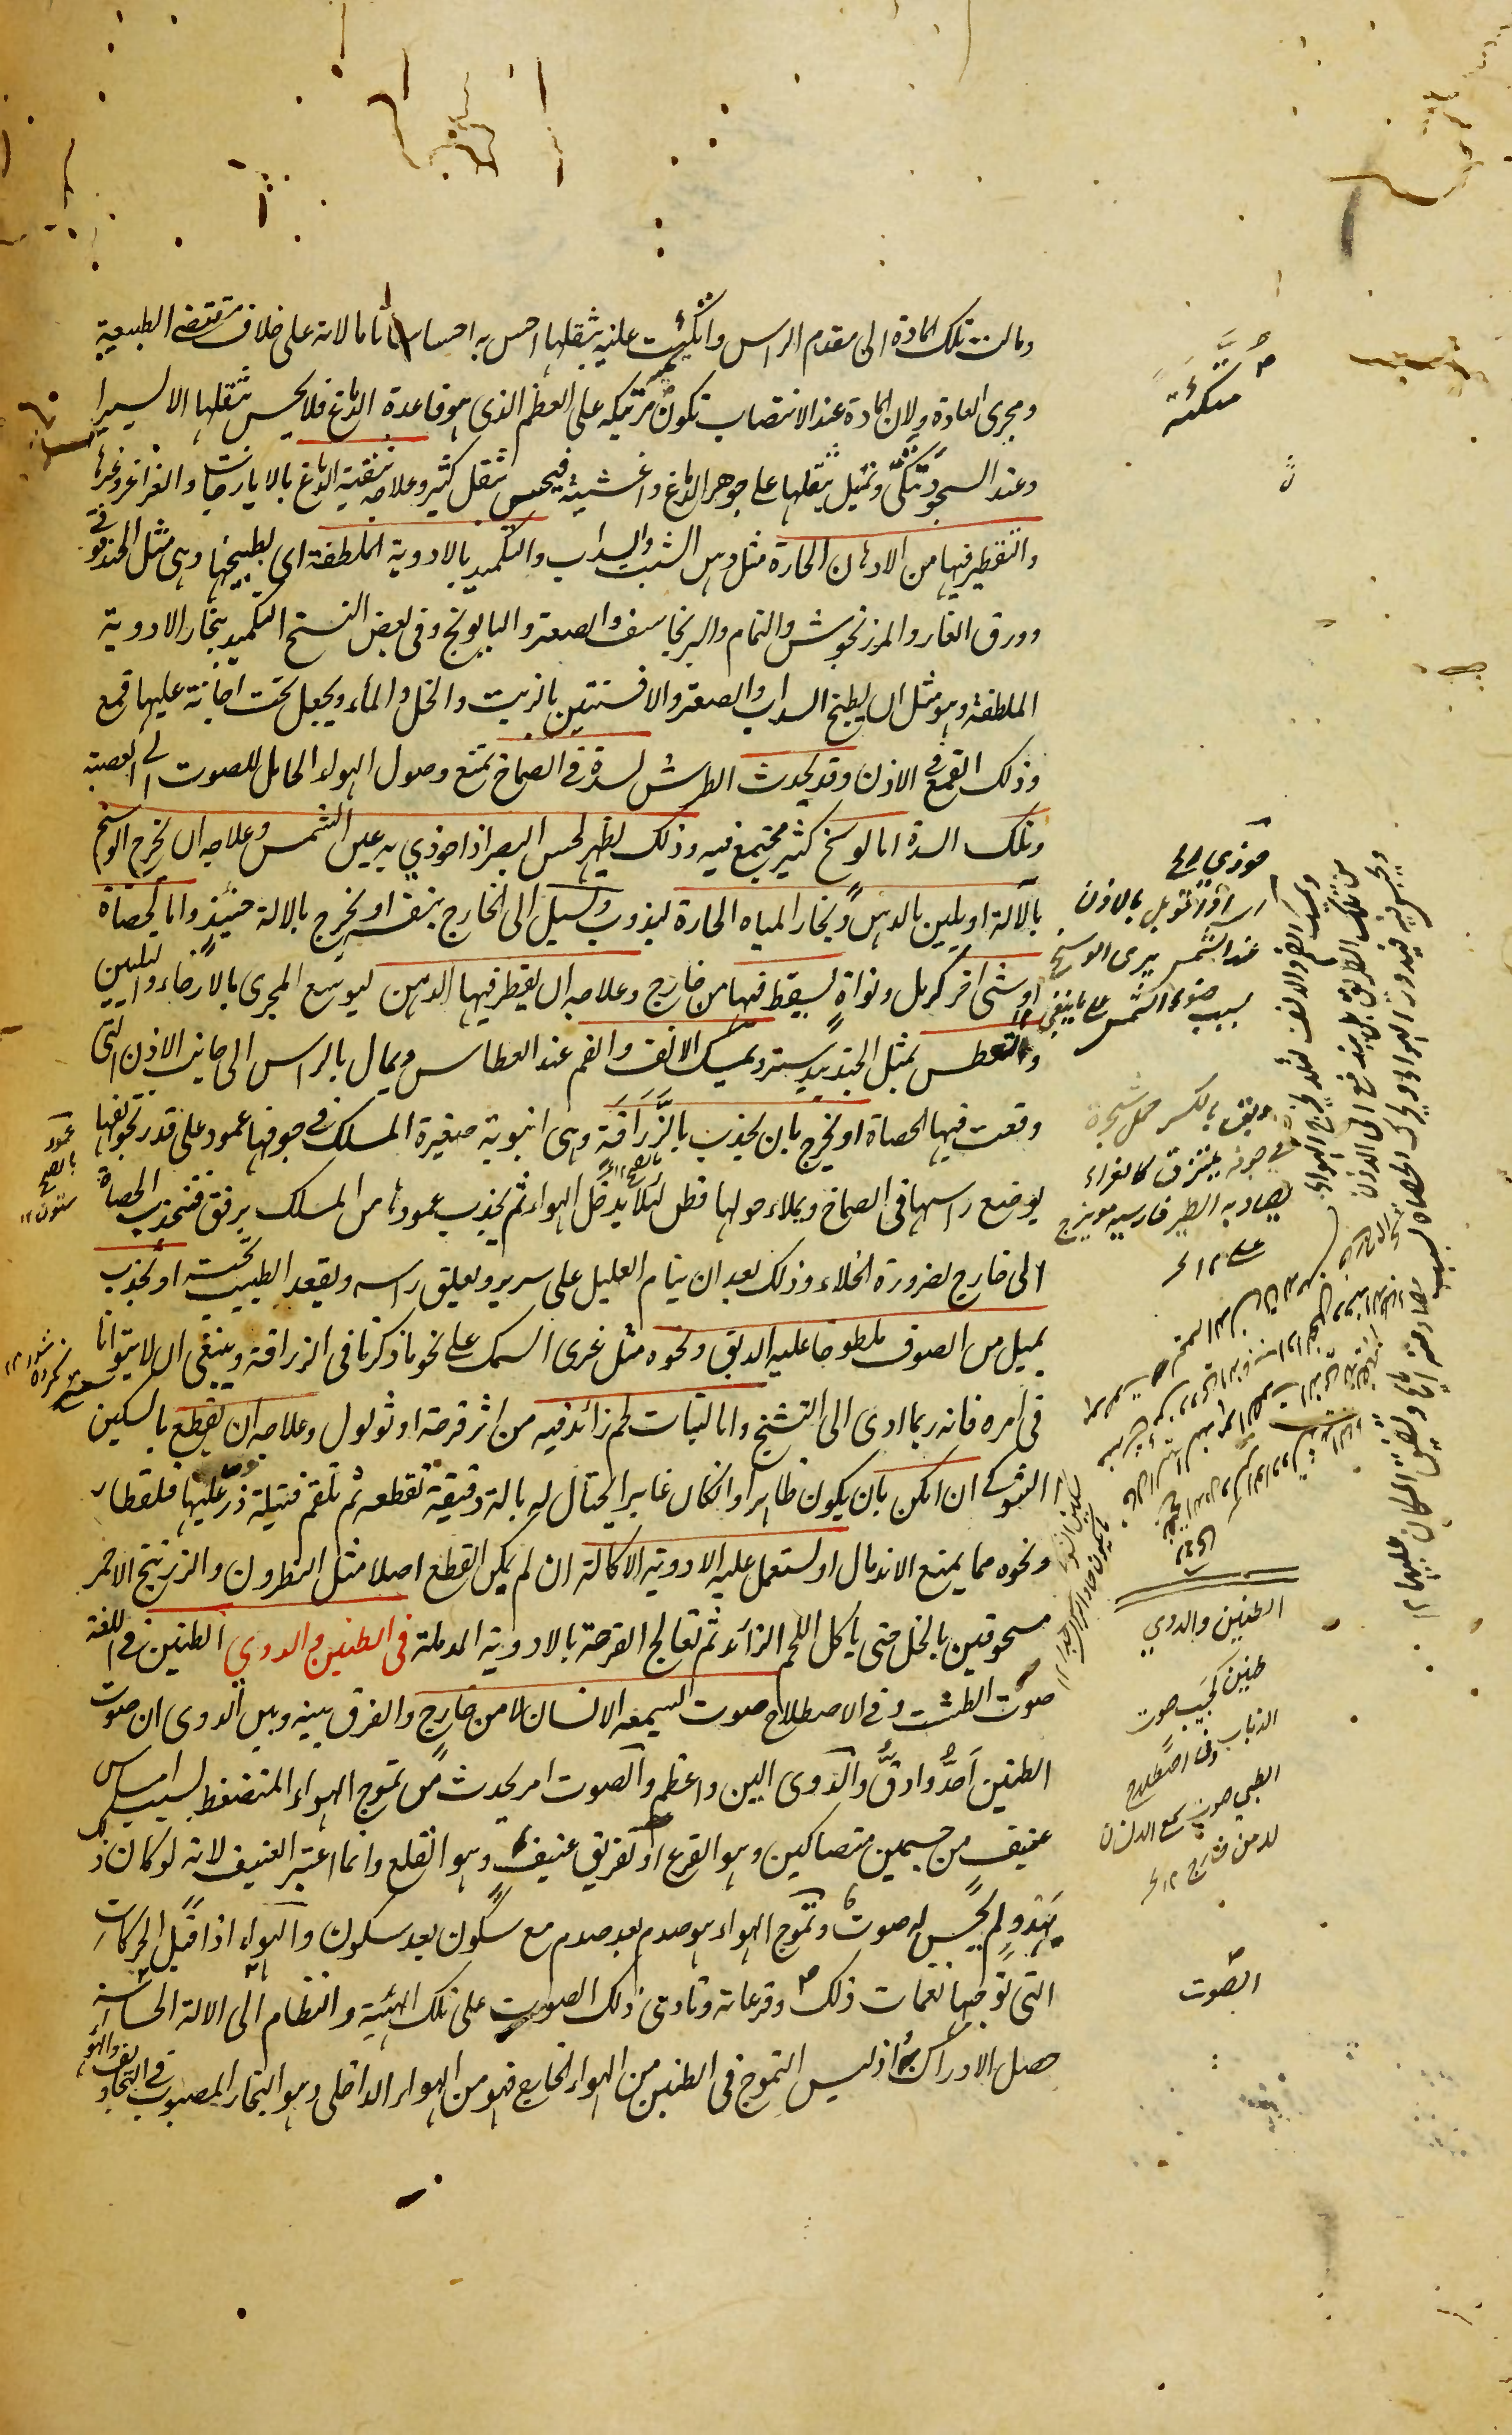 ومالت تلك المادة الى مقدم الراس واتكيت عليه بثقلها احس به احساسا تاما لانه على خلاف مقتضى الطبيعية
ومجرى العادة ولان المادة عند الانتصاب تكون متكية على العظم الذى هو قاعدة الدماغ فلا يحس بثقلها الا يسيرا
وعند السجود تتكى وتميل بثقلها على جوهر الدماغ واغشيته فيحس بثقل كثير وعلاجه تنقية الدماغ بالايارجات والغراغر وغيرها
والتقطير فيها من الادهان الحارة مثل دهن الشبت والسداب والتكميد بالادوية الملطفة اى بطبيخها وهى مثل الحندقوقى
وورق الغار والمرزنجوش والنمام والبرنجاسف والصعتر والبابونج وفى بعض النسخ التكميد ببخار الادوية
الملطفة وهو مثل ان يطبخ السداب والصعتر والافسنتين بالزيت والخل والماء ويجعل تحت اجانة عليها قمع
وذلك القمع فى الاذن وقد يحدث الطرش لسدة فى الصماخ تمنع وصول الهواء الحامل للصوت الى العصبة
وتلك السدة اما لوسخ كثير مجتمع فيه وذلك يظهر لحس البصر اذا حوذي به عين الشمس وعلاجه ان يخرج الوسخ
بالآلة او يلين بالدهن وبخار المياه الحارة ليذوب ويسيل الى الخارج بنفسه او يخرج بالالة حينئذ واما لحصاة
او شئ اخر كرمل ونواة يسقط فيها من خارج وعلاجه ان يقطر فيها الدهن ليوسع المجرى بالارخاء والتليين
والتعطس بمثل الجندبيدستر ويمسك الانف والفم عند العطاس ويمال بالراس الى جانب الاذن التى
وقعت فيها الحصاة او يخرج بان يجذب بالزراقة وهى انبوبة صغيرة المسلك فى جوفها عمود على قدر تجويفها
يوضع راسها فى الصماخ ويملاء حولها قطن لئلا يدخل الهواء ثم يجذب عمودها من المسلك برفق فتنجذب الحصاة
الى خارج لضرورة الخلاء وذلك بعد ان ينام العليل على سرير ويعلق راسه ويقعد الطبيب تحته او يجذب
بميل من الصوف ملطوخا عليه الدبق ونحوه مثل غرى السمك على نحو ما ذكرنا فى الزراقة وينبغى ان لا يتوانا
فى امره فانه ربما ادى الى التشنج واما لنبات لحم زائد فيه من اثر قرحة او ثولول وعلاجه ان يقطع بالسكين
الشوكى ان امكن بان يكون ظاهرا وان كان غايرا يحتال له بالة دقيقة تقطعه ثم تلقم فتيلة ذر عليها قلقطار
ونحوه مما يمنع الاندمال او يستعمل عليه الادوية الاكالة ان لم يمكن القطع اصلا مثل النطرون والزرنيخ الاحمر
مسحوقين بالخل حتى ياكل اللحم الزائد ثم تعالج القرحة بالادوية المدملة فى الطنين والدوي الطنين فى اللغة
صوت الطشت وفى الاصطلاح صوت يسمعه الانسان لا من خارج والفرق بينه وبين الدوى ان صوت
الطنين احد وادق والدوى الين واعظم والصوت امر يحدث من تموج الهواء المنضغط بسبب امساس
عنيف من جسمين متصاكين وهو القرع او تفريق عنيف وهو القلع وانما اعتبر العنيف لانه لو كان ذلك
بهدو لم يحس له صوت وتموج الهواء هو صدم بعد صدم مع سكون بعد سكون والهواء اذا قبل الحركات
التى توجبها نغمات ذلك وقرعاته وتادى ذلك الصوت على تلك الهيئة والنظام الى الالة الحساسة
حصل الادراك به اذ ليس التموج فى الطنين من الهواء الخارج فهو من الهواء الداخلى وهو البخار المصبوب فى التجاويف والهواء
متكئة
حوذى اى
اذا تقوبل بالاذن
عند الشمس يرى الوسخ
بسبب ضوء الشمس على ما ينبغى
دبق بالكسر حمل شجرة
فى جوفه يلتزق كالغراء
يصاد به الطير فارسيه مويزج
الطنين والدوي
طنين صوت
الذباب وفى اصطلاح
الطبى صوت يسمع الانسان
لا من خارج
الصوت
عمود
بالفتح
ستون